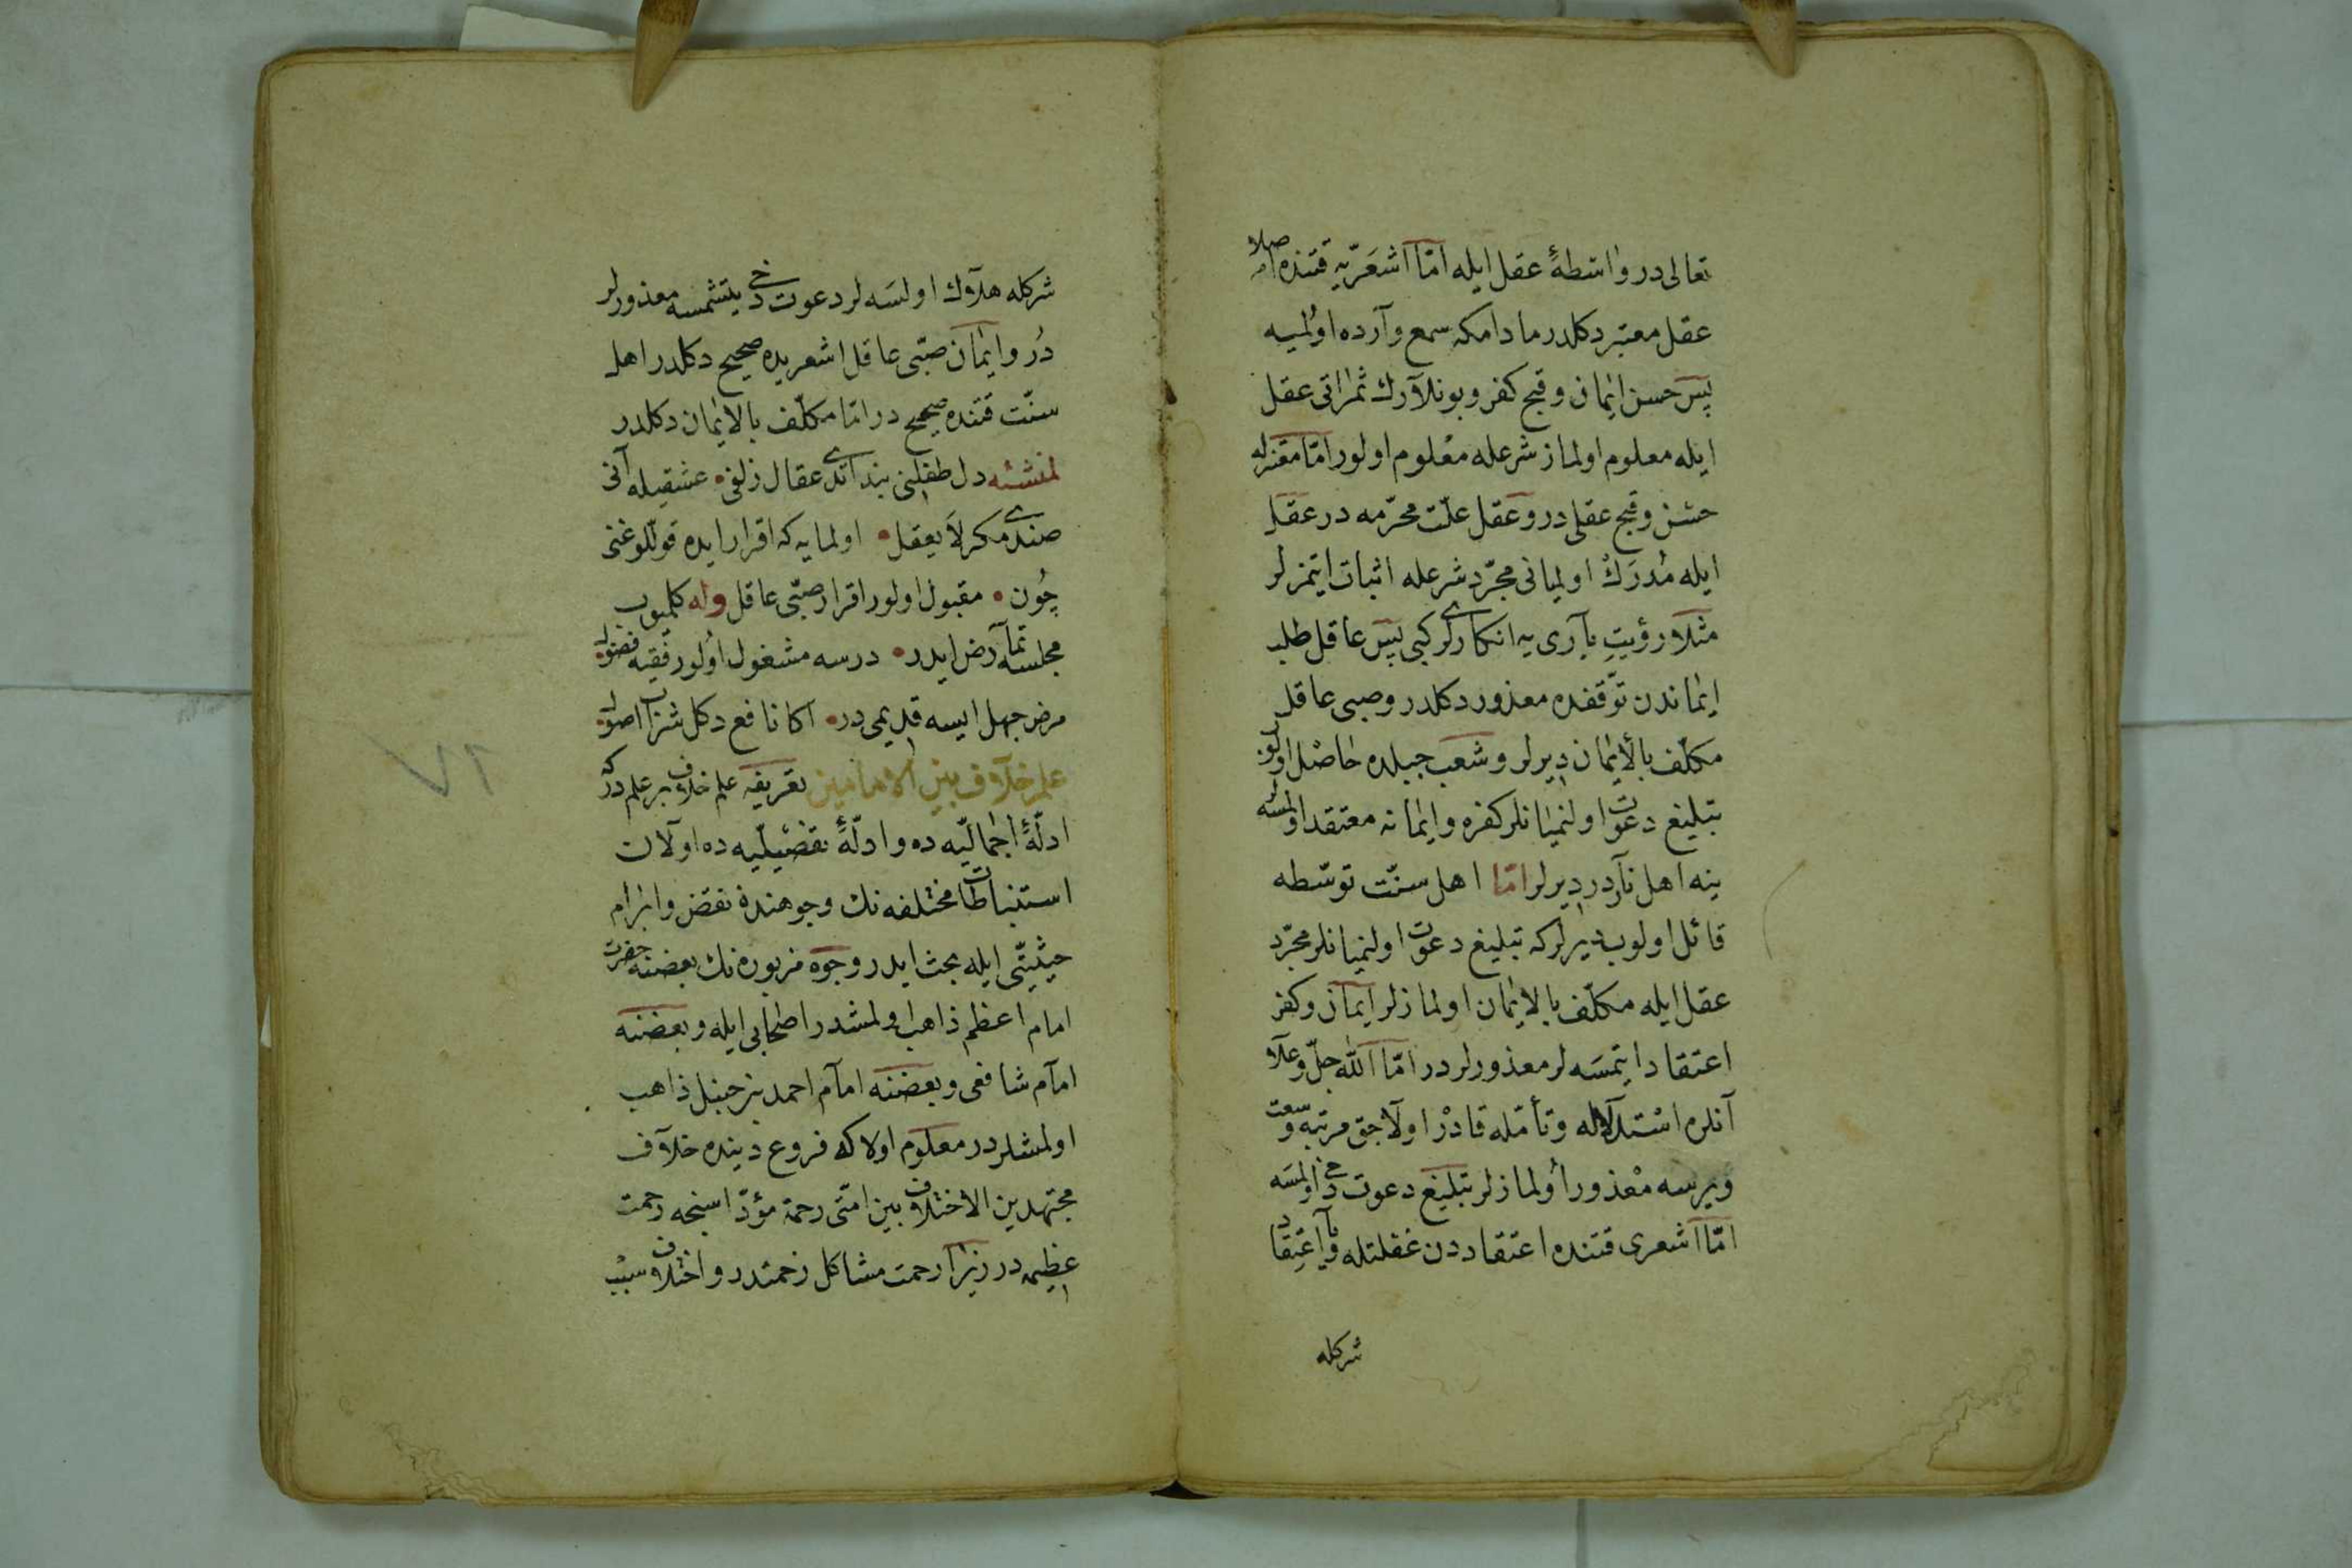 تعالى در واسطهٔ عقل ايله امّا اشعريّه قتنده اصلا
عقل معتبر دكلدر مادامكه سمع وآرده اولميه
پس حسن ايمان و قبح كفر و بونلارك ثمراتى عقل
ايله معلوم اولماز شرعله معلوم اولور امّا معتزله
حسن و قبح عقلى در و عقل علّت محرّمه در عقل
ايله مُدرَكْ اولميانى مجرّد شرعله اثبات ايتمزلر
مثلا رؤيتِ بآرى يه انكارلرى كبى پس عاقل طلب
ايماندن توقّفده معذور دكلدر و صبى عاقل
مكلّف بالأيمان ديرلر و شعب جبلده حاصل اولوب
تبليغ دعوت اولنميانلر كفره و ايمانه معتقد اولمسه لر
ينه اهل نآردر ديرلر امّا اهل سنّت توسّطه
قائل اولوب ديرلركه تبليغ دعوت اولنميانلر مجرّد
عقل ايله مكلّف بالايمان اولمازلر ايمان و كفر
اعتقاد ايتمسَه لر معذورلردر امّا الله جلّ وعلا
آنلره استدلاله و تأمّله قادر اولاجق مرتبه وسعت
ويرسه معذور اولمازلر تبليغ دعوت دخى اولمسَه
امّا اشعرى قتنده اعتقاددن غفلتله ويا اعتقاد
شركله
شركله هلاك اولسَه لر دعوت دخى يتشمسه معذورلر
دُر و ايمان صبّى عاقل اشعريده صحيح دكلدر اهل
سنّت قتنده صحيح در امّا مكلّف بالايمان دكلدر
لمنشئه دل طفلنى بند ايتدى عقال زلفى • عشقيله آنى
صندى مكر لا يعقل • اولمايه كه اقرار ايده قوللوغنى
چُون • مقبول اولور اقرار صبّى عاقل وله كلميوب
مجلسه تمآرض ايدر • درسه مشغول اولور فقيه فضول •
مرض جهل ايسه قديمى در • اكا نافع دكل شراب اصول •
علم خلآف بين الامامين تعريفه علم خلاف بر علم در كه
ادلّهٔ اجماليّه ده و ادلّهٔ تفضيليّه ده اولان
استنباطات مختلفه نك وجوهنده نقض و ابرام
حيثيّتى ايله بحث ايدر وجوه مزبوره نك بعضنه حضرت
امام اعظم ذاهب اولمشدر اصحابى ايله و بعضنه
امآم شافعى و بعضنه امآم احمد بن حنبل ذاهب
اولمشلردر معلوم اولا كه فروع دينده خلآف
مجتهدين الاختلاف بين امّتى رحمة مؤدّاسنجه رحمت
عظيمه در زيرا رحمت مشاكل زحمتدر و اختلاف سبب